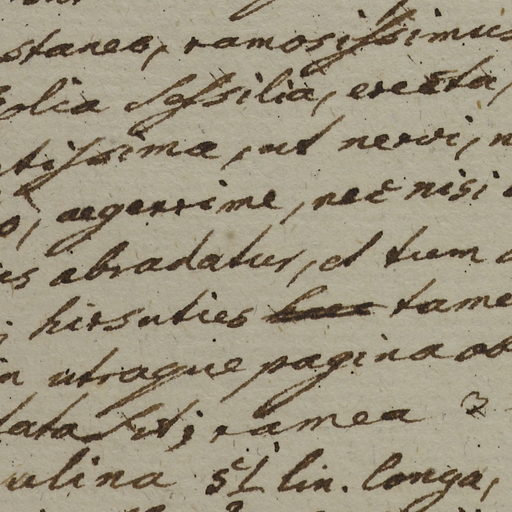 staneo, ramosissimus
folia sessilia, erecta,
tissima, ut nervi, n
o, aegerrime, nec nisi
us abradatur, et tum
hirsuties tame
in utraque pagina ob
lata sit; ramea 3
ulina 5 lin. longa,